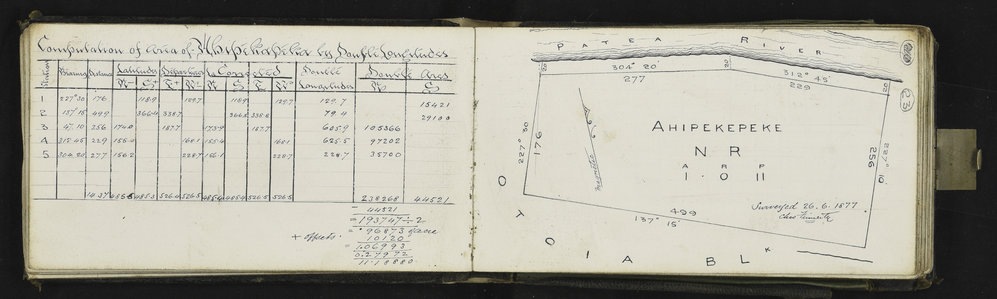 Computation of Area of Ahipekepeke by Double Longitudes
Station Bearing Distance Latitude Departure Corrected Double Longitudes Double Area
N S E W N S E W N S
1 227°30 176 118.9 129.7 118.9 129.7 129.7 15421
2 137°15 499 366.4 338.7 366.5 338.8 79.4 29100
3 47.10 256 174.0 187.7 173.9 187.7 605.9 105366
4 312.45 229 155.4 168.1 155.4 168.1 625.5 97202
5 304.20 277 156.2 228.7 156.1 228.7 228.7 35700
1437 485.6 485.3 526.4 526.5 485.4 485.4 526.5 526.5 238268 44521
44521
= 193747 ÷ 2
= .96873 of acre
+ offsets 10120
= 1.06993
0.27972
11.18880
PATEA RIVER
20
23
304° 20'
277
20
312° 45'
229
20
227° 30
176
227° 10'
256
AHIPEKEPEKE
N R
A R P
1 . 0 11
Surveyed 26.6.1877
Chas
499
137° 15'
OTOIA BLK